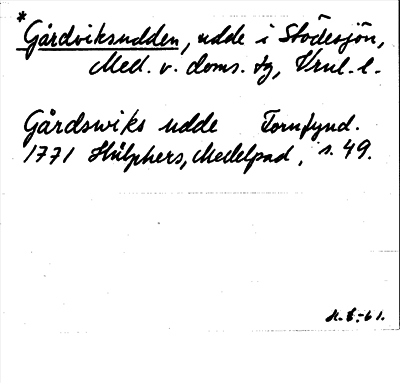 *Gårdviksudden, udde i Stödesjön,
Med. v. doms. tg, Vnl. l.
Gårdswiks udde Fornfynd.
1771 Hülphers, Medelpad, s. 49.